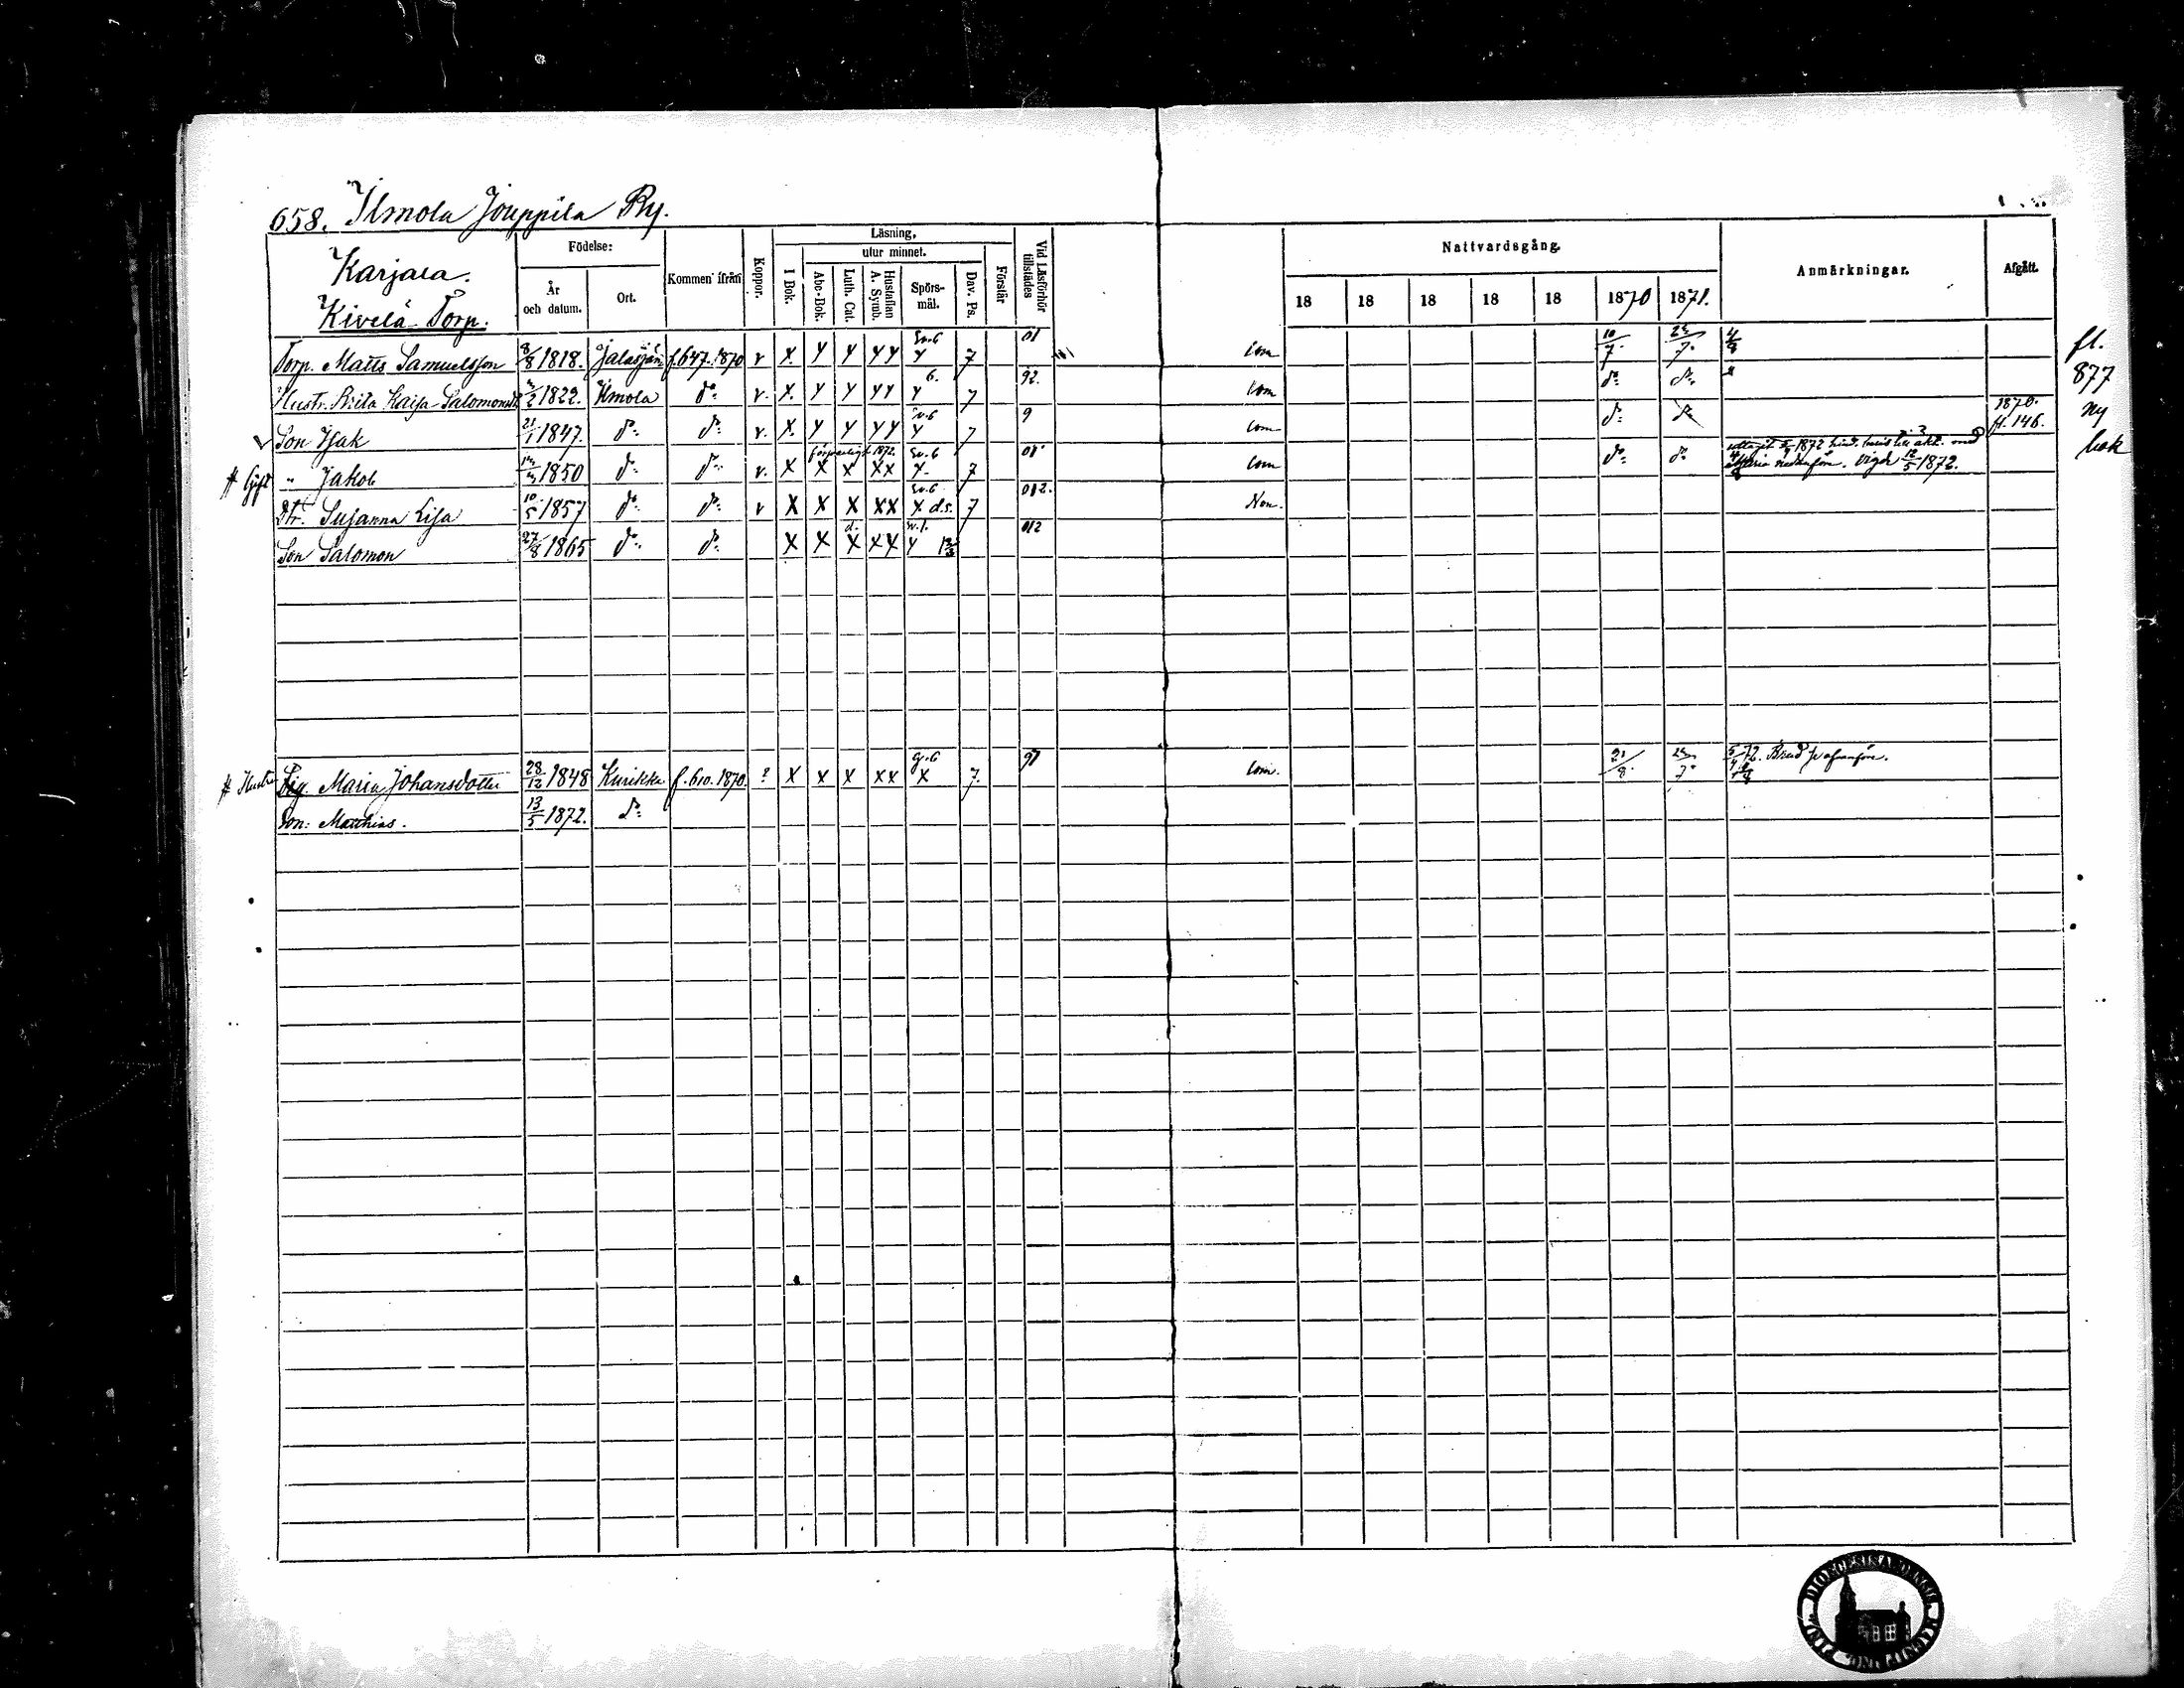 658. Ilmola Jouppila By.
Karjala.
Kivelä Torp.
Födelse:
År och datum.
Ort.
Kommen ifrån
Koppor.
Läsning,
utur minnet.
I Bok.
Abo-Bok.
Luth. Cat.
Hustaflan A. Symb.
Spörsmål.
Dav. Ps.
Förstår
Vid Läsförhör tillstädes
Nattvardsgång.
18 18 18 18 18 1870 1871.
Anmärkningar.
Afgått.
Torp. Matts Samuelsson 8/8 1818. Jalasjärvi f. 647. 1870 v X Y Y Y Y Y 7 01 com 10/7 23/7 4/8 fl.
Hustr. Brita Kaisa Salomonsdr 1822. Ilmola do v. X. Y Y Y Y Y 6. 7 92. com do do 877
Son Isak 21/1 1847. do do v. X. Y Y Y Y Y 7 9 com do do 1870. fl. 146. ny
# Gift " Jakob 1850 do do v. X X X X X X. 7 01 com do do 1872 med Maria nedanför. Vigde 12/5 1872. bok
förswarligt 1872.
Dtr. Susanna Lisa 10/5 1857 do do v X X X X X X d.s. 7 012. Non.
Son Salomon 27/8 1865 do do X X X X X Y 012
# Hustru Pig. Maria Johansdotter 28/12 1848 Kurikka f. 610. 1870. ? X X X X X g.6 X 7. 91 com. 21/8 23/7 72. Brud t. ofvanför.
Son: Matthias. 13/5 1872. do